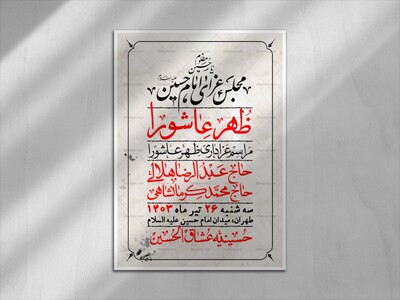 یا حسین مظلوم
مجلس عزای امام حسین علیه السلام
ظهر عاشورا
مراسم عزاداری ظهر عاشورا
حاج عبدالرضا هلالی
حاج محمد کرمانشاهی
سه شنبه ۲۶ تیر ماه ۱۴۰۳
طهران، میدان امام حسین علیه السلام
حسینیه عشاق الحسین